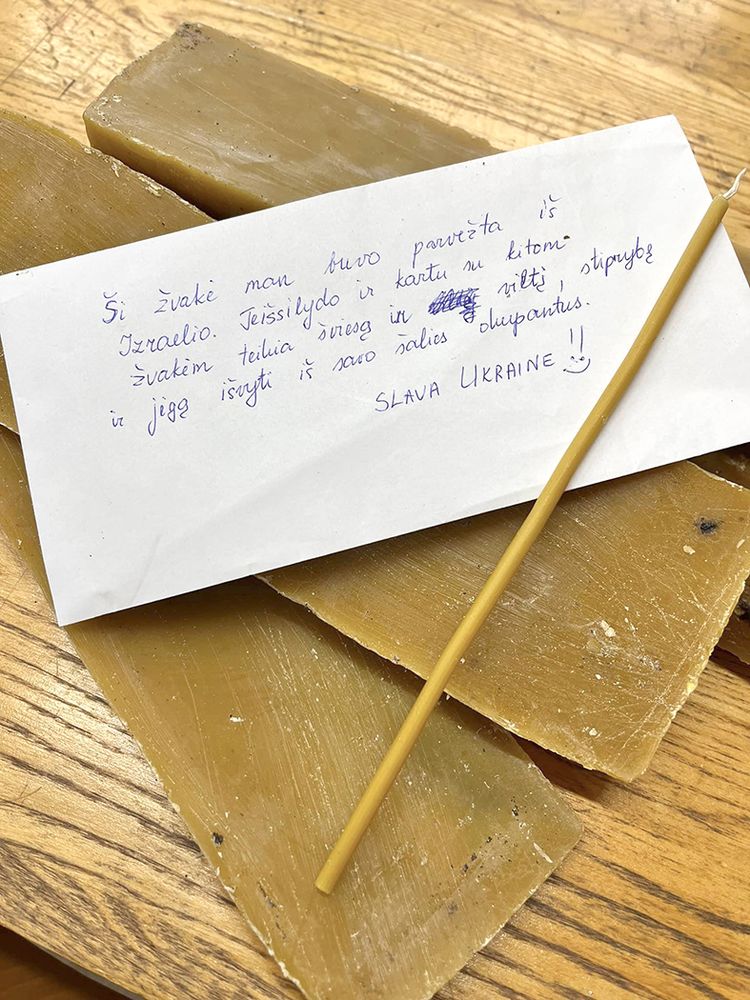 Ši žvakė man buvo parvežta iš
Izraelio. Teišsilydo ir kartu su kitom
žvakėm teikia šviesą ir viltį, stiprybę
ir jėgą išvyti iš savo šalies okupantus.
SLAVA UKRAINE !!